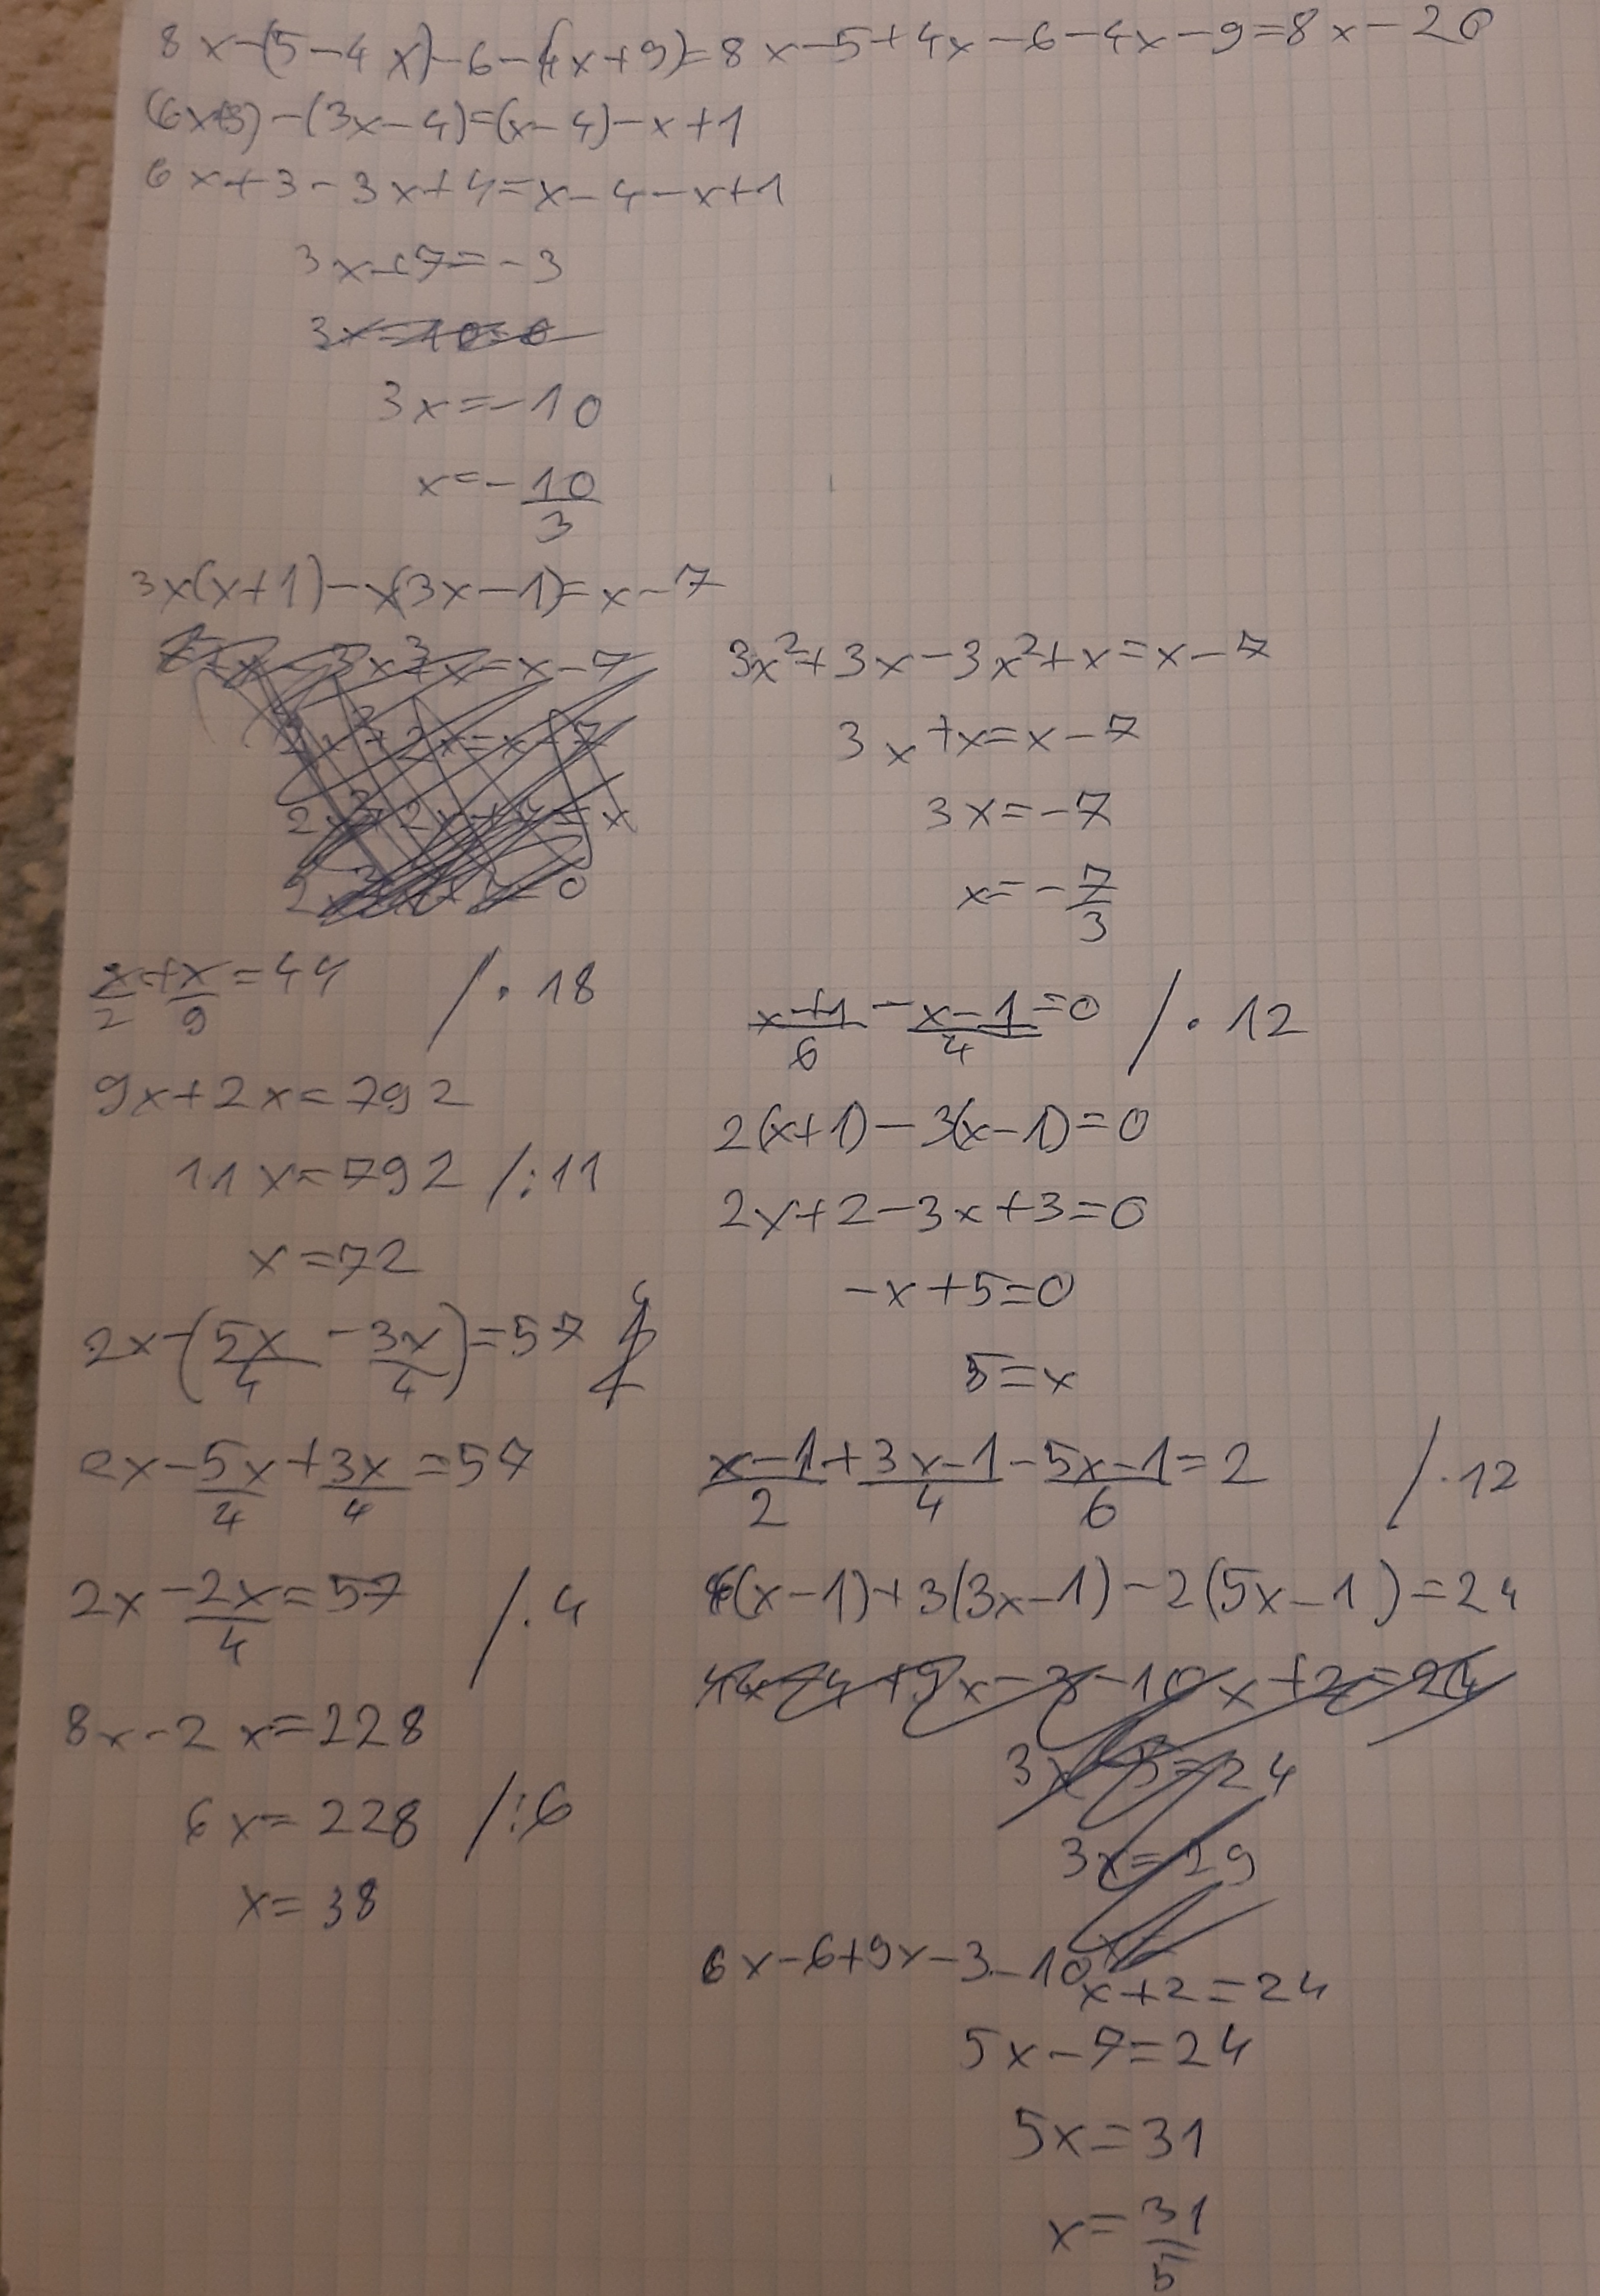 8x-(5-4x)-6-(4x+9)=8x-5+4x-6-4x-9=8x-20
(6x+3)-(3x-4)=(x-4)-x+1
6x+3-3x+4=x-4-x+1
3x+7=-3
3x=-10
x=-10/3
3x(x+1)-x(3x-1)=x-7
3x²+3x-3x²+x=x-7
3x+x=x-7
3x=-7
x=-7/3
x/2+x/9=44 /·18
9x+2x=792
11x=792 /:11
x=72
2x-(5x/4-3x/4)=57
2x-5x/4+3x/4=57
2x-2x/4=57 /·4
8x-2x=228
6x=228 /:6
x=38
x+1/6-x-1/4=0 /·12
2(x+1)-3(x-1)=0
2x+2-3x+3=0
-x+5=0
5=x
x-1/2+3x-1/4-5x-1/6=2 /·12
6(x-1)+3(3x-1)-2(5x-1)=24
4x-4+9x-3-10x+2=24
3x-5=24
3x=29
6x-6+9x-3-10x+2=24
5x-7=24
5x=31
x=31/5